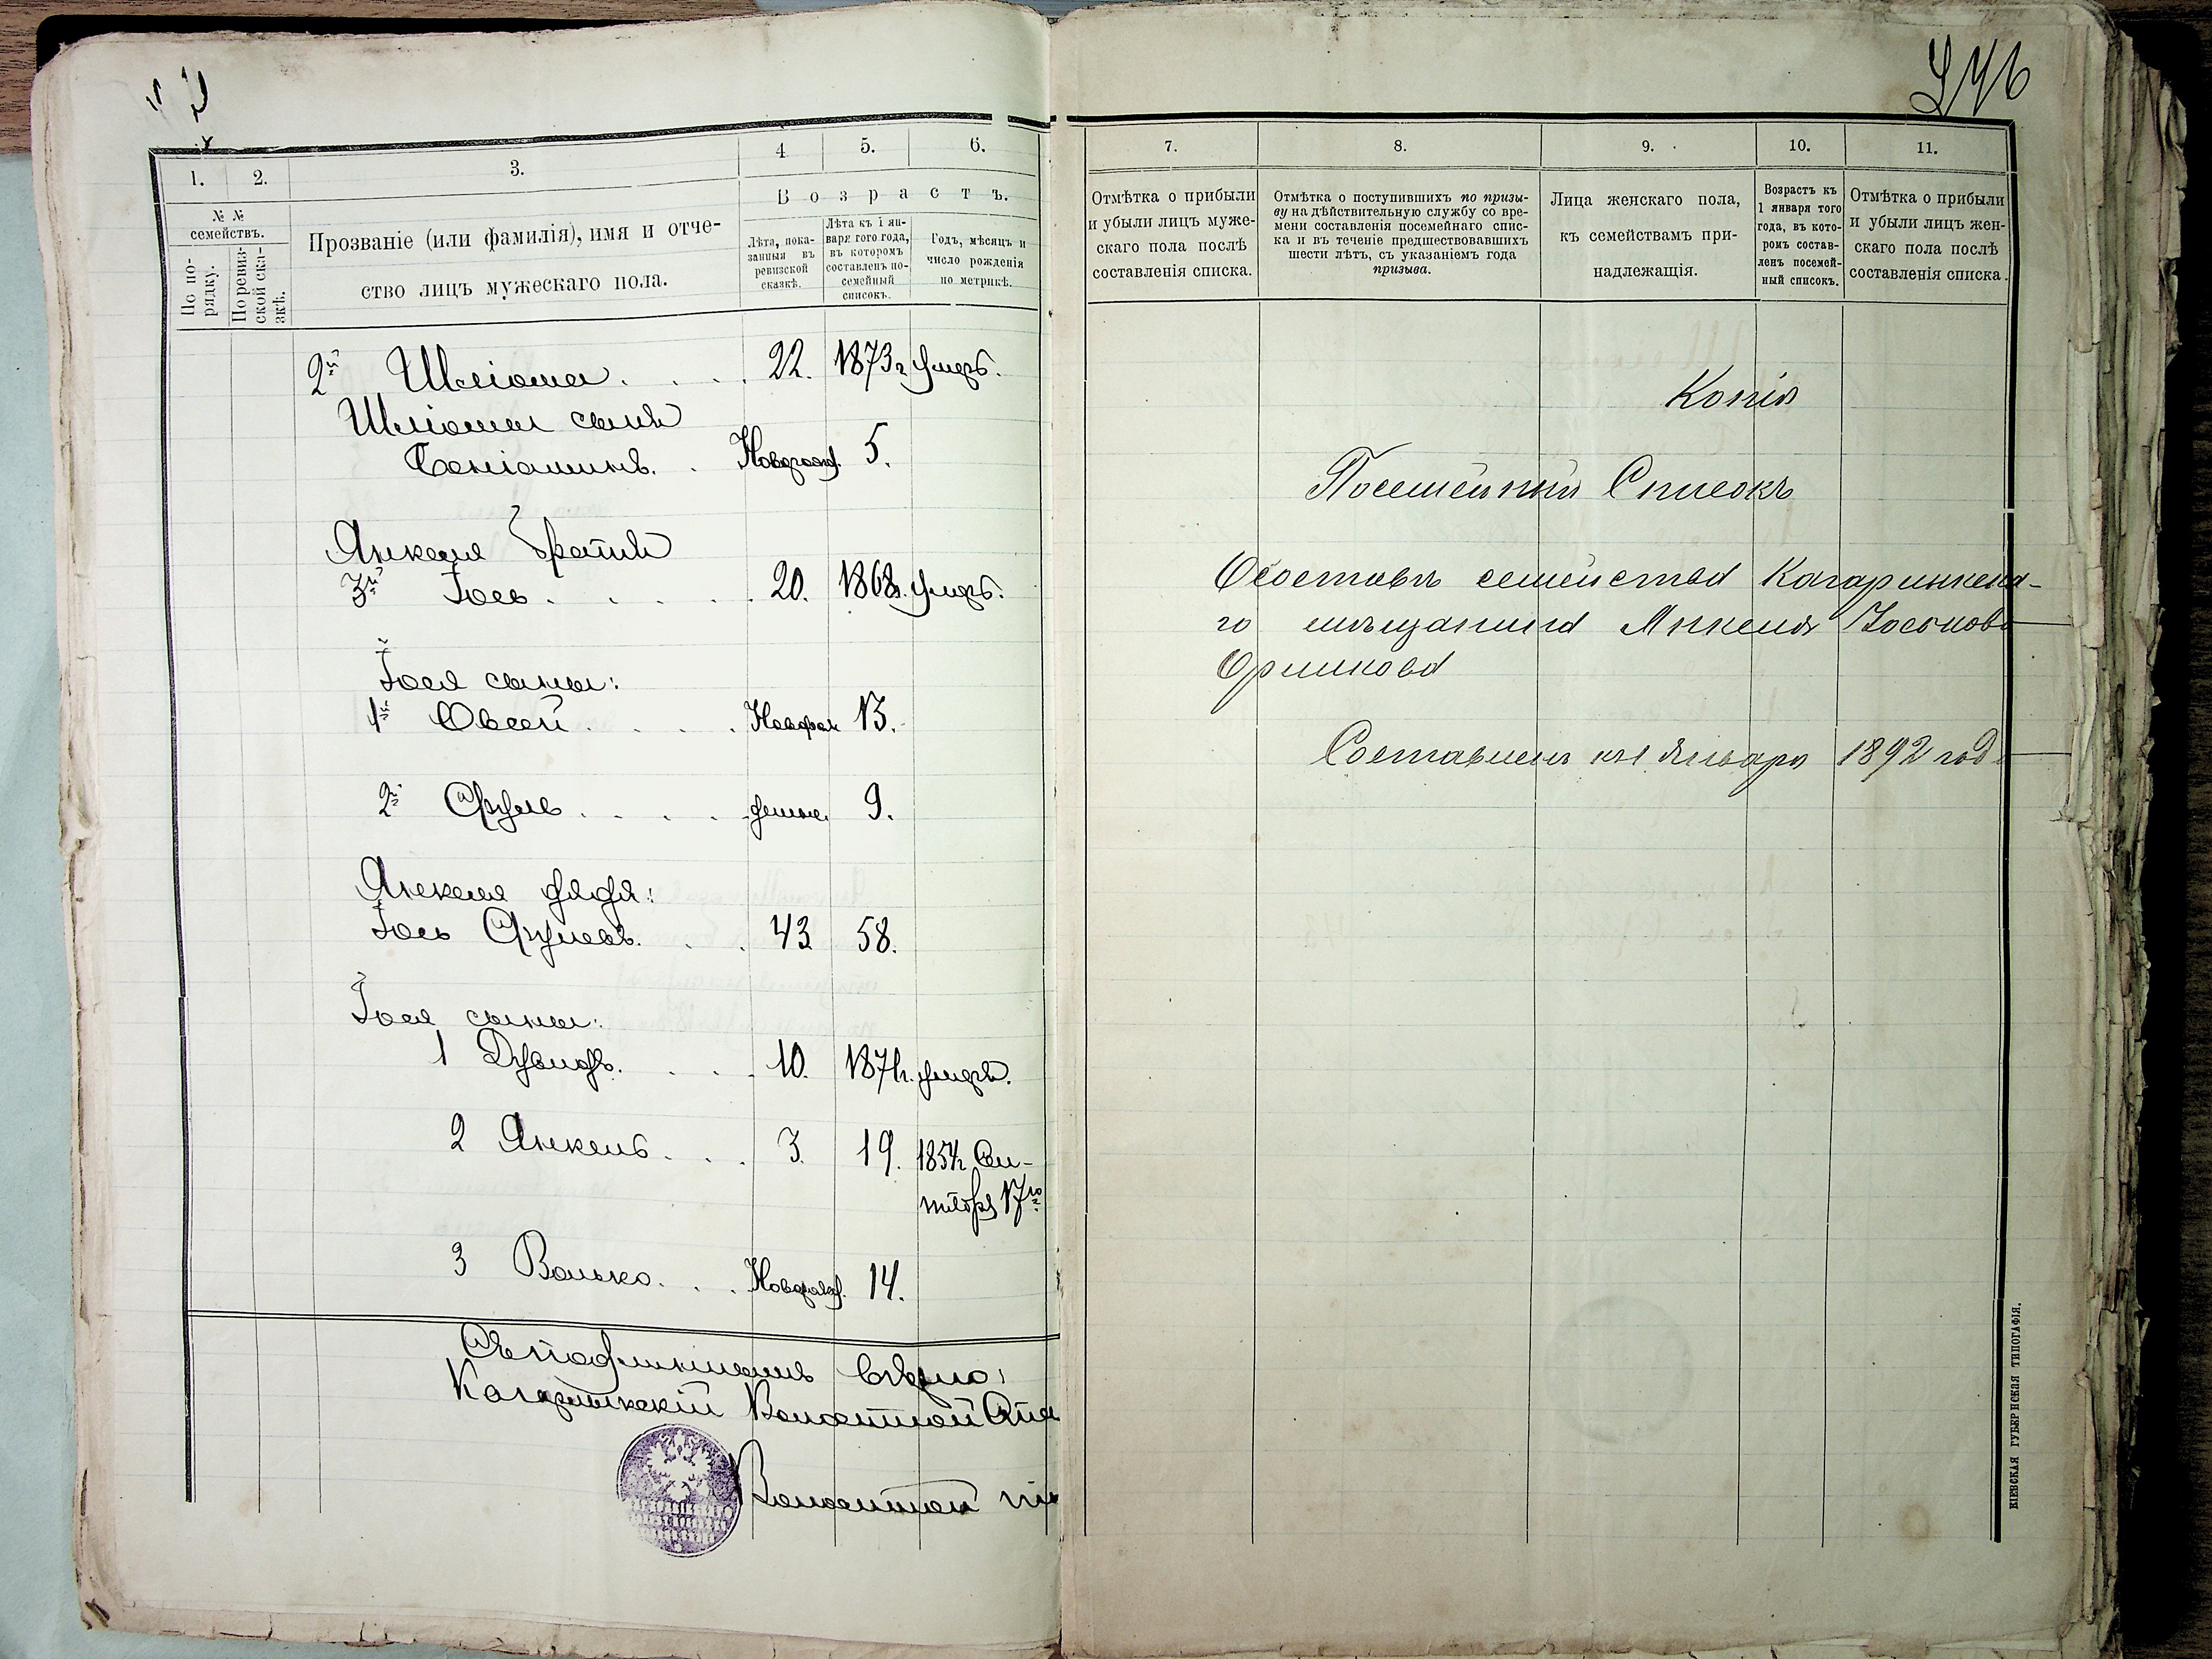 246
1. 2. 3. 4 5. 6.
В о з р а с т ъ.
№ №
семействъ.
По по-
рядку.
По ревиз-
ской ска-
зкѣ.
Прозваніе (или фамилія), имя и отче-
ство лицъ мужескаго пола.
Лѣта, пока-
занныя въ
ревизской
сказкѣ.
Лѣта къ 1 ян-
варя того года,
въ которомъ
составленъ по-
семейный
списокъ.
Годъ, мѣсяцъ и
число рожденія
по метрикѣ.
2й Шліома . . . . 22. 1873г умеръ.
Шліомы сынъ
Беніоминъ. . Новорожд. 5.
Янкеля братъ
3й Іось . . . . . 20. 1868г. умеръ.
Іося сыны:
1й Овсей . . . . Новорож 13.
2й Сруль . . . . 9.
Янкеля дядя:
Іось Срулевъ. . . 43 58.
Іося сыны:
1 Дувидъ. . . . 10. 1871г. умеръ.
2 Янкель. . . . 3. 19. 1854г Сен-
тября 17го
3 Волько. . . Новорожд. 14.
Съ подлиннымъ вѣрно:
Кагарлыкскій Волостной Ста
Волостной пи
7. 8. 9. 10. 11.
Отмѣтка о прибыли
и убыли лицъ муже-
скаго пола послѣ
составленія списка.
Отмѣтка о поступившихъ по призы-
ву на дѣйствительную службу со вре-
мени составленія посемейнаго спис-
ка и въ теченіе предшествовавшихъ
шести лѣтъ, съ указаніемъ года
призыва.
Лица женскаго пола,
къ семействамъ при-
надлежащія.
Возрастъ къ
1 января того
года, въ кото-
ромъ состав-
ленъ посемей-
ный списокъ.
Отмѣтка о прибыли
и убыли лицъ жен-
скаго пола послѣ
составленія списка.
Копія
Посемейный Списокъ
О составѣ семейства Кагарлыкска-
го мѣщанина Янкеля Іоськова
Орликова
Составленъ къ 1 Января 1892 года
КІЕВСКАЯ ГУБЕРНСКАЯ ТИПОГРАФІЯ.